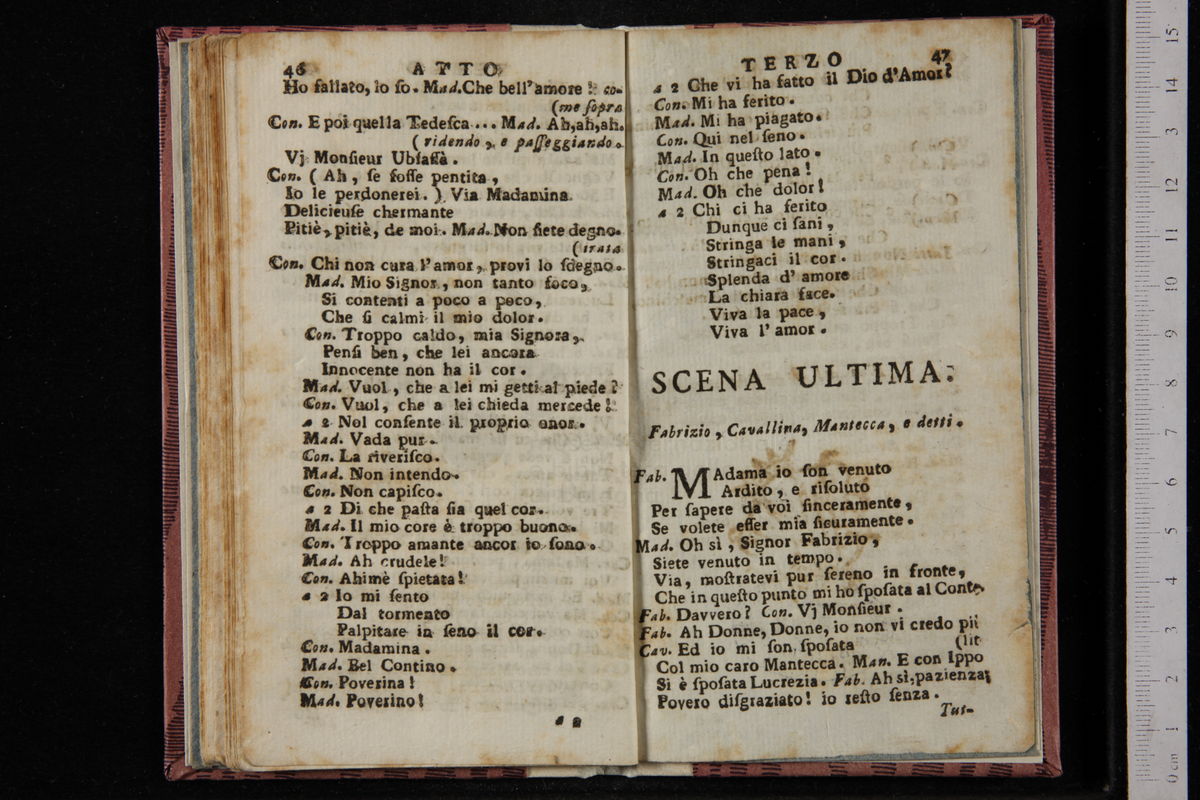 46 ATTO
Ho fallato, io ſo. Mad. Che bell'amore! co-
(me ſopra
Con. E poi quella Tedeſca... Mad. Ah, ah, ah.
(ridendo, e paſſeggiando.
Vj Monſieur Ubſaſſà.
Con. (Ah, ſe foſſe pentita,
Io le perdonerei.) Via Madamina
Delicieuſe chermante
Pitiè, pitiè, de moi. Mad. Non ſiete degno.
(irata
Con. Chi non cura l'amor, provi lo ſdegno.
Mad. Mio Signor, non tanto foco,
Si contenti a poco a poco,
Che ſi calmi il mio dolor.
Con. Troppo caldo, mia Signora,
Penſi ben, che lei ancora
Innocente non ha il cor.
Mad. Vuol, che a lei mi getti al piede?
Con. Vuol, che a lei chieda mercede!
a 2 Nol conſente il proprio onor.
Mad. Vada pur.
Con. La riveriſco.
Mad. Non intendo.
Con. Non capiſco.
a 2 Di che paſta ſia quel cor.
Mad. Il mio core è troppo buono.
Con. Troppo amante ancor io ſono.
Mad. Ah crudele!
Con. Ahimè ſpietata!
a 2 Io mi ſento
Dal tormento
Palpitare in ſeno il cor.
Con. Madamina.
Mad. Bel Contino.
Con. Poverina!
Mad. Poverino!
a 2
TERZO 47
a 2 Che vi ha fatto il Dio d'Amor?
Con. Mi ha ferito.
Mad. Mi ha piagato.
Con. Qui nel ſeno.
Mad. In queſto lato.
Con. Oh che pena!
Mad. Oh che dolor!
a 2 Chi ci ha ferito
Dunque ci ſani,
Stringa le mani,
Stringaci il cor.
Splenda d'amore
La chiara face.
Viva la pace,
Viva l'amor.
SCENA ULTIMA.
Fabrizio, Cavallina, Mantecca, e detti.
Fab. MAdama io ſon venuto
Ardito, e riſoluto
Per ſapere da voi ſinceramente,
Se volete eſſer mia ſicuramente.
Mad. Oh sì, Signor Fabrizio,
Siete venuto in tempo.
Via, moſtratevi pur ſereno in fronte,
Che in queſto punto mi ho ſpoſata al Conte.
Fab. Davvero? Con. Vj Monſieur.
Fab. Ah Donne, Donne, io non vi credo più
Cav. Ed io mi ſon ſpoſata (lit
Col mio caro Mantecca. Man. E con Ippo
Si è ſpoſata Lucrezia. Fab. Ah sì, pazienza;
Povero diſgraziato! io reſto ſenza.
Tut-